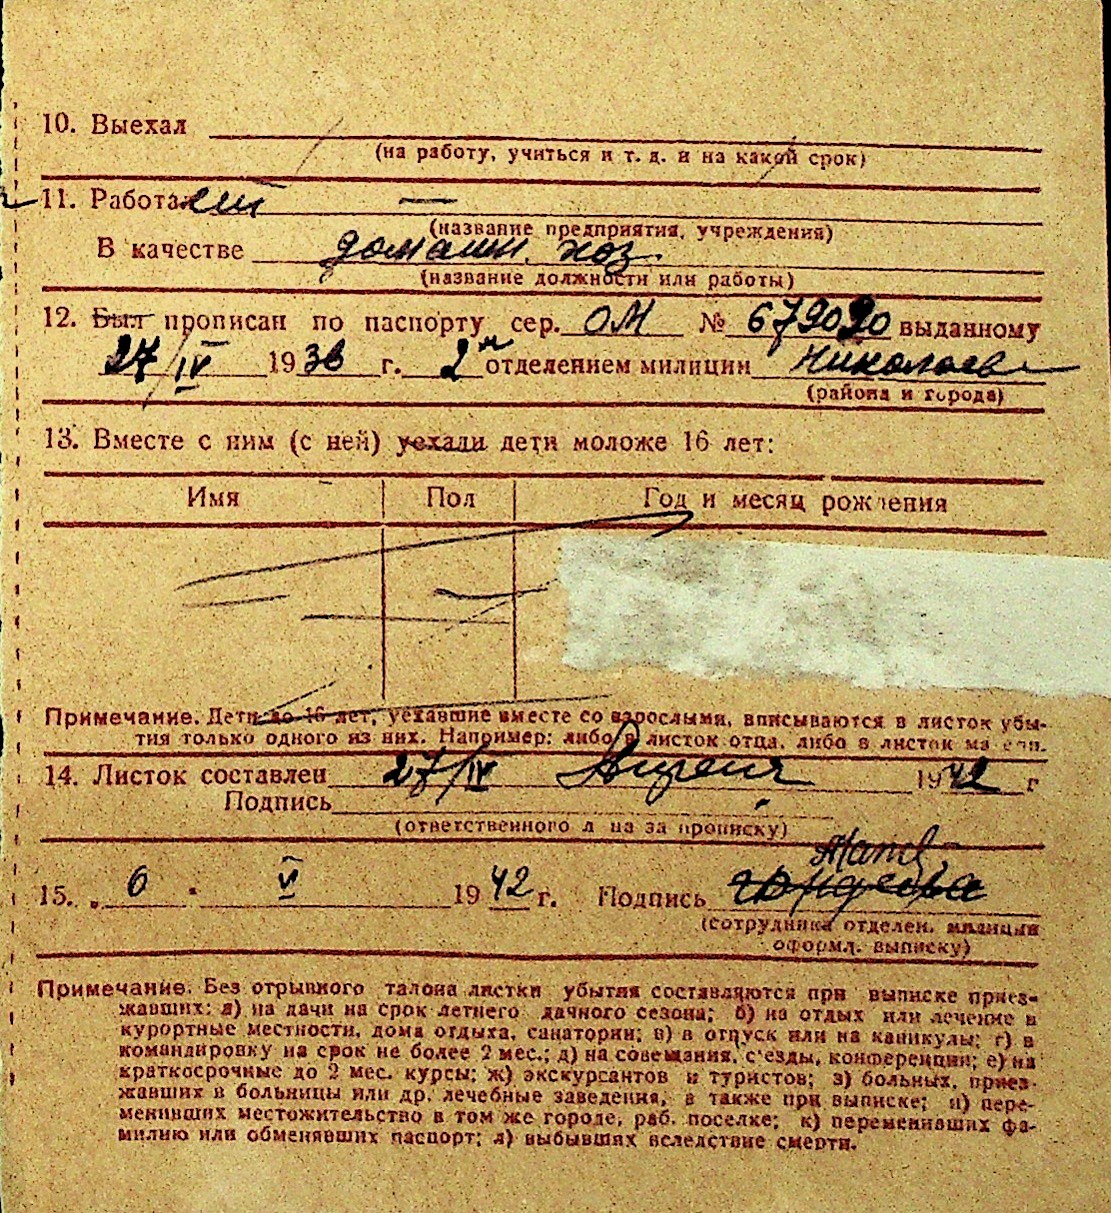 10. Выехал
(на работу, учиться и т. д. и на какой срок)
11. Работает —
(название предприятия, учреждения)
В качестве домашн. хоз.
(название должности или работы)
12. Был прописан по паспорту сер. ОМ № 679090 выданному
27/IV 1938 г. 2м отделением милиции Николаев
(района и города)
13. Вместе с ним (с ней) уехали дети моложе 16 лет:
Имя Пол Год и месяц рождения
Примечание. Дети до 16 лет, уехавшие вместе со взрослыми, вписываются в листок убы-
тия только одного из них. Например: либо в листок отца, либо в листок матери.
14. Листок составлен 27/IV Апреля 1942 г
Подпись
(ответственного лица за прописку)
15. 6 · VI 1942 г. Подпись
(сотрудника отделен. милиции
оформл. выписку)
Примечание. Без отрывного талона листки убытия составляются при выписке приез-
жавших: а) на дачи на срок летнего дачного сезона; б) на отдых или лечение в
курортные местности, дома отдыха, санатории; в) в отпуск или на каникулы; г) в
командировку на срок не более 2 мес.; д) на совещания, с'езды, конференции; е) на
краткосрочные до 2 мес. курсы; ж) экскурсантов и туристов; з) больных, приез-
жавших в больницы или др. лечебные заведения, а также при выписке; и) пере-
менивших местожительство в том же городе, раб. поселке; к) переменивших фа-
милию или обменявших паспорт; л) выбывших вследствие смерти.